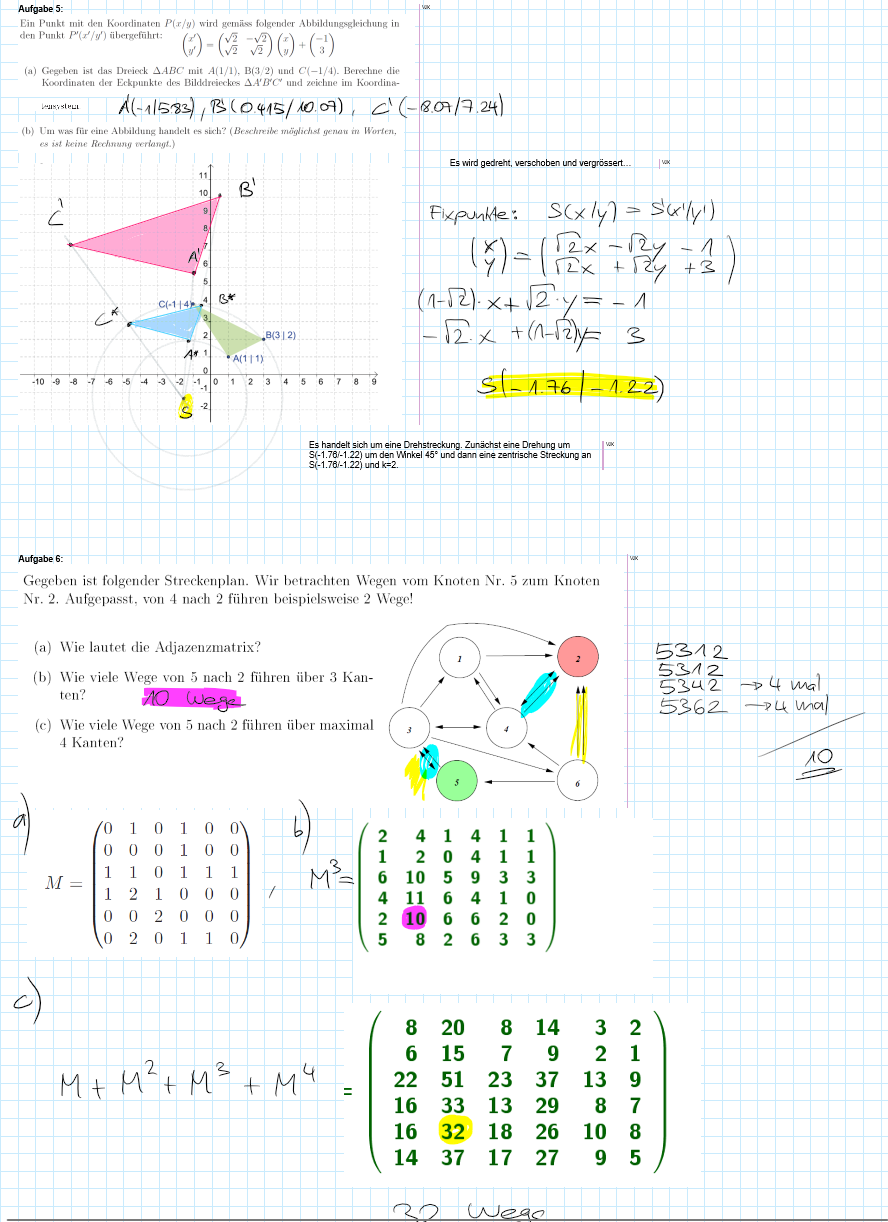 Aufgabe 5:
Ein Punkt mit den Koordinaten P(x/y) wird gemäss folgender Abbildungsgleichung in
den Punkt P'(x'/y') übergeführt: (x' y') = (√2 −√2 √2 √2) (x y) + (−1 3)
(a) Gegeben ist das Dreieck ΔABC mit A(1/1), B(3/2) und C(−1/4). Berechne die
Koordinaten der Eckpunkte des Bilddreieckes ΔA'B'C' und zeichne im Koordina-
tensystem
A(-1/5.83), B'(0.415/10.07), C'(-8.07/7.24)
(b) Um was für eine Abbildung handelt es sich? (Beschreibe möglichst genau in Worten,
es ist keine Rechnung verlangt.)
Es wird gedreht, verschoben und vergrössert...
Fixpunkte: S(x/y) = S'(x'/y')
(x y) = (√2x − √2y − 1 √2x + √2y + 3)
(1-√2)·x + √2·y = -1
-√2·x + (1-√2)y = 3
S(-1.76|-1.22)
C'
B'
A'
C*
B*
A*
S
C(-1 | 4)
B(3 | 2)
A(1 | 1)
11
10
9
8
7
6
5
4
3
2
1
0
-1
-2
-10 -9 -8 -7 -6 -5 -4 -3 -2 -1 0 1 2 3 4 5 6 7 8 9
Es handelt sich um eine Drehstreckung. Zunächst eine Drehung um
S(-1.76/-1.22) um den Winkel 45° und dann eine zentrische Streckung an
S(-1.76/-1.22) und k=2.
Aufgabe 6:
Gegeben ist folgender Streckenplan. Wir betrachten Wegen vom Knoten Nr. 5 zum Knoten
Nr. 2. Aufgepasst, von 4 nach 2 führen beispielsweise 2 Wege!
(a) Wie lautet die Adjazenzmatrix?
(b) Wie viele Wege von 5 nach 2 führen über 3 Kan-
ten? 10 Wege
(c) Wie viele Wege von 5 nach 2 führen über maximal
4 Kanten?
1
2
3
4
5
6
5312
5312
5342 → 4 mal
5362 → 4 mal
10
a)
M =
0 1 0 1 0 0
0 0 0 1 0 0
1 1 0 1 1 1
1 2 1 0 0 0
0 0 2 0 0 0
0 2 0 1 1 0
,
b)
M³ =
2 4 1 4 1 1
1 2 0 4 1 1
6 10 5 9 3 3
4 11 6 4 1 0
2 10 6 6 2 0
5 8 2 6 3 3
c)
M + M² + M³ + M⁴ =
8 20 8 14 3 2
6 15 7 9 2 1
22 51 23 37 13 9
16 33 13 29 8 7
16 32 18 26 10 8
14 37 17 27 9 5
32 Wege